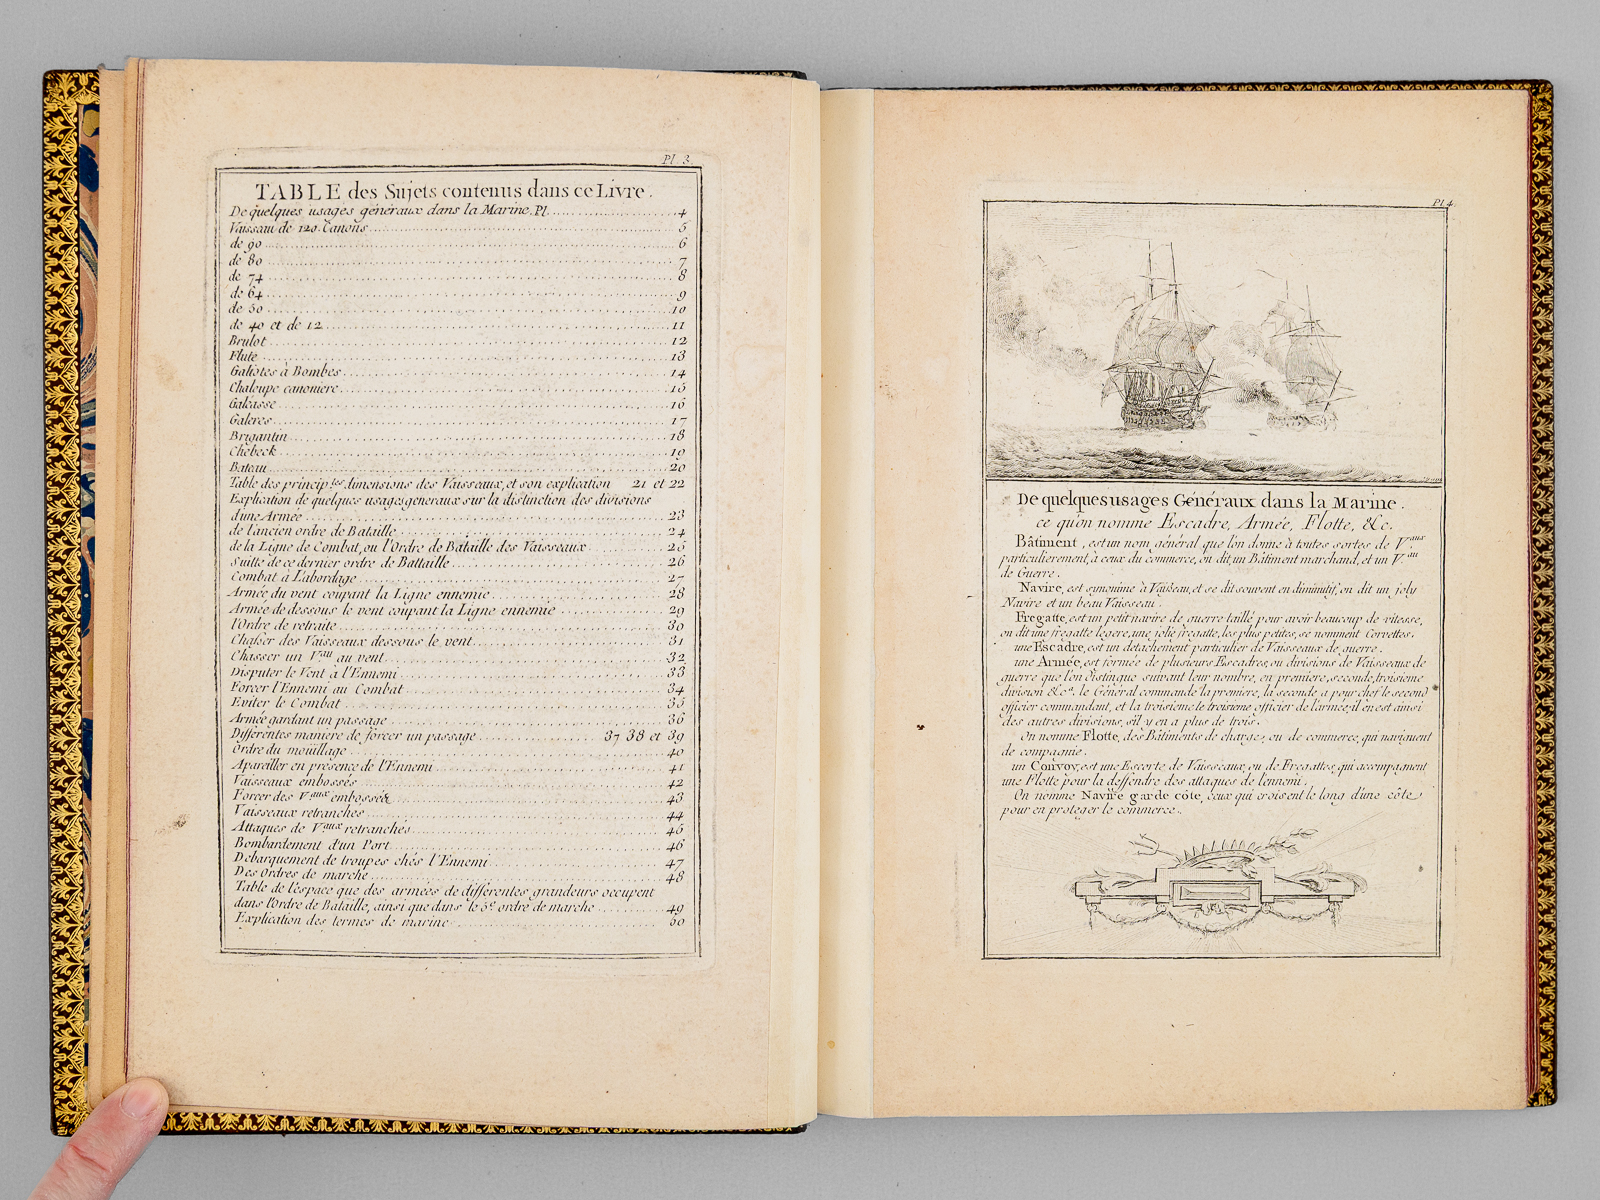 Pl 3.
TABLE des Sujets contenus dans ce Livre.
De quelques usages généraux dans la Marine. Pl. 4
Vaisseau de 120. Canons 5
de 90 6
de 80 7
de 74 8
de 64 9
de 50 10
de 40 et de 12 11
Brulot 12
Flute 13
Galiotes à Bombes 14
Chaloupe canoniere 15
Galeasse 16
Galeres 17
Brigantin 18
Chebeck 19
Bateau 20
Table des princip.les dimensions des Vaisseaux, et son explication 21 et 22
Explication de quelques usages generaux sur la distinction des divisions
d'une Armée 23
de l'ancien ordre de Bataille 24
de la Ligne de Combat, ou l'Ordre de Bataille des Vaisseaux 25
Suitte de ce dernier ordre de Battaille 26
Combat à L'abordage 27
Armée du vent coupant la Ligne ennemie 28
Armée de dessous le vent coupant la Ligne ennemie 29
l'Ordre de retraite 30
Chasser des Vaisseaux dessous le vent 31
Chasser un V.au au vent 32
Disputer le Vent à l'Ennemi 33
Forcer l'Ennemi au Combat 34
Eviter le Combat 35
Armée gardant un passage 36
Differentes maniere de forcer un passage 37 38 et 39
Ordre du mouillage 40
Apareiller en présence de l'Ennemi 41
Vaisseaux embossés 42
Forcer des V.aux embossés 43
Vaisseaux retranchés 44
Attaques de V.aux retranchés 45
Bombardement d'un Port 46
Debarquement de troupes chés l'Ennemi 47
Des Ordres de marche 48
Table de l'espace que des armées de differentes grandeurs occupent
dans l'Ordre de Bataille, ainsi que dans le 5.e ordre de marche 49
Explication des termes de marine 50
Pl. 4.
De quelques usages Généraux dans la Marine.
ce qu'on nomme Escadre, Armée, Flotte, &c.
Bâtiment, est un nom général que l'on donne à toutes sortes de V.aux
particulierement, à ceux du commerce, on dit, un Bâtiment marchand, et un V.au
de Guerre.
Navire, est synonime à Vaisseau, et se dit souvent en diminutif, on dit un joly
Navire et un beau Vaisseau.
Fregatte, est un petit navire de guerre taillé pour avoir beaucoup de vitesse,
on dit une fregatte legere, une jolie fregatte, les plus petites, se nomment Corvettes.
une Escadre, est un détachement particulier de Vaisseaux de guerre.
une Armée, est formée de plusieurs Escadres, ou divisions de Vaisseaux de
guerre que l'on distingue suivant leur nombre, en premiere, seconde, troisieme
division &c.a le Général commande la premiere, la seconde a pour chef le second
officier commandant, et la troisieme le troisieme officier de l'armée, il en est ainsi
des autres divisions, s'il y en a plus de trois.
On nomme Flotte, des Bâtiments de charge, ou de commerce, qui naviguent
de compagnie.
un Convoy, est une Escorte de Vaisseaux, ou de Fregattes, qui accompagnent
une Flotte pour la deffendre des attaques de l'ennemi.
On nomme Navire garde côte, ceux qui croisent le long d'une côte
pour en proteger le commerce.